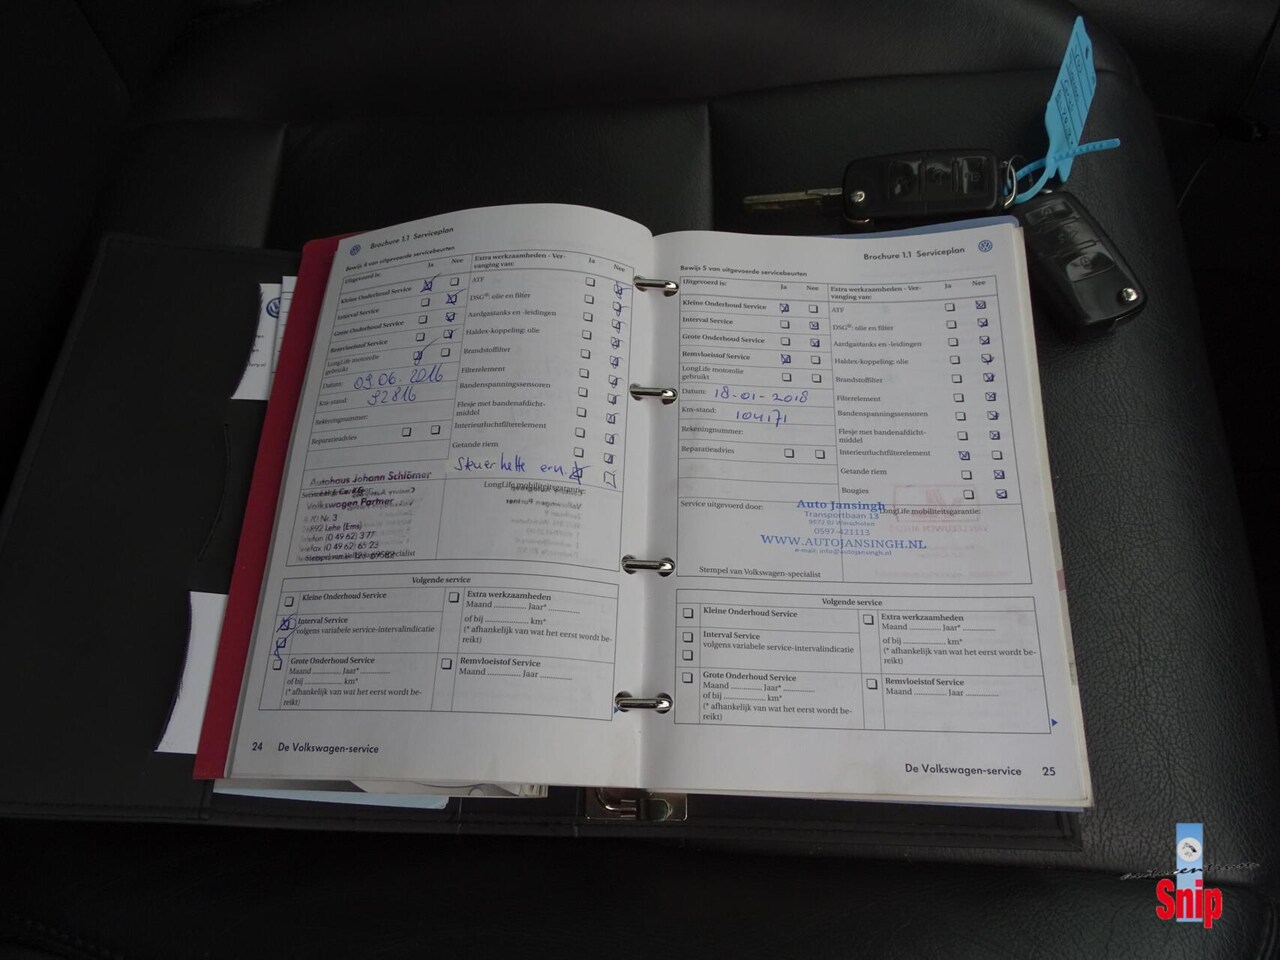 Brochure 1.1 Serviceplan
Bewijs 4 van uitgevoerde servicebeurten
Uitgevoerd in:
Ja
Nee
Kleine Onderhoud Service
Interval Service
Grote Onderhoud Service
Remvloeistof Service
LongLife motorolie
gebruikt
Datum: 09.06.2016
Km-stand: 92816
Rekeningnummer:
Reparatieadvies
Extra werkzaamheden - Ver-
vanging van:
Ja
Nee
ATF
DSG®: olie en filter
Aardgastanks en -leidingen
Haldex-koppeling: olie
Brandstoffilter
Filterelement
Bandenspanningssensoren
Flesje met bandenafdicht-
middel
Interieurluchtfilterelement
Getande riem
Steuerkette ern.
Autohaus Johann Schlömer
Volkswagen Partner
Nr. 3
Lehe (Ems)
LongLife mobiliteitsgarantie:
Volgende service
Kleine Onderhoud Service
Interval Service
volgens variabele service-intervalindicatie
Grote Onderhoud Service
Maand ............ Jaar* ............
of bij ............ km*
(* afhankelijk van wat het eerst wordt be-
reikt)
Extra werkzaamheden
Maand ............ Jaar* ............
of bij ............ km*
(* afhankelijk van wat het eerst wordt be-
reikt)
Remvloeistof Service
Maand ............ Jaar ............
24 De Volkswagen-service
Brochure 1.1 Serviceplan
Bewijs 5 van uitgevoerde servicebeurten
Uitgevoerd in:
Ja
Nee
Kleine Onderhoud Service
Interval Service
Grote Onderhoud Service
Remvloeistof Service
LongLife motorolie
gebruikt
Datum: 18-01-2018
Km-stand: 104171
Rekeningnummer:
Reparatieadvies
Extra werkzaamheden - Ver-
vanging van:
Ja
Nee
ATF
DSG®: olie en filter
Aardgastanks en -leidingen
Haldex-koppeling: olie
Brandstoffilter
Filterelement
Bandenspanningssensoren
Flesje met bandenafdicht-
middel
Interieurluchtfilterelement
Getande riem
Bougies
Service uitgevoerd door:
Auto Jansingh
Transportbaan 13
9672 BJ Winschoten
0597-421113
WWW.AUTOJANSINGH.NL
e-mail: info@autojansingh.nl
LongLife mobiliteitsgarantie:
Stempel van Volkswagen-specialist
Volgende service
Kleine Onderhoud Service
Interval Service
volgens variabele service-intervalindicatie
Grote Onderhoud Service
Maand ............ Jaar* ............
of bij ............ km*
(* afhankelijk van wat het eerst wordt be-
reikt)
Extra werkzaamheden
Maand ............ Jaar* ............
of bij ............ km*
(* afhankelijk van wat het eerst wordt be-
reikt)
Remvloeistof Service
Maand ............ Jaar ............
De Volkswagen-service 25
Snip